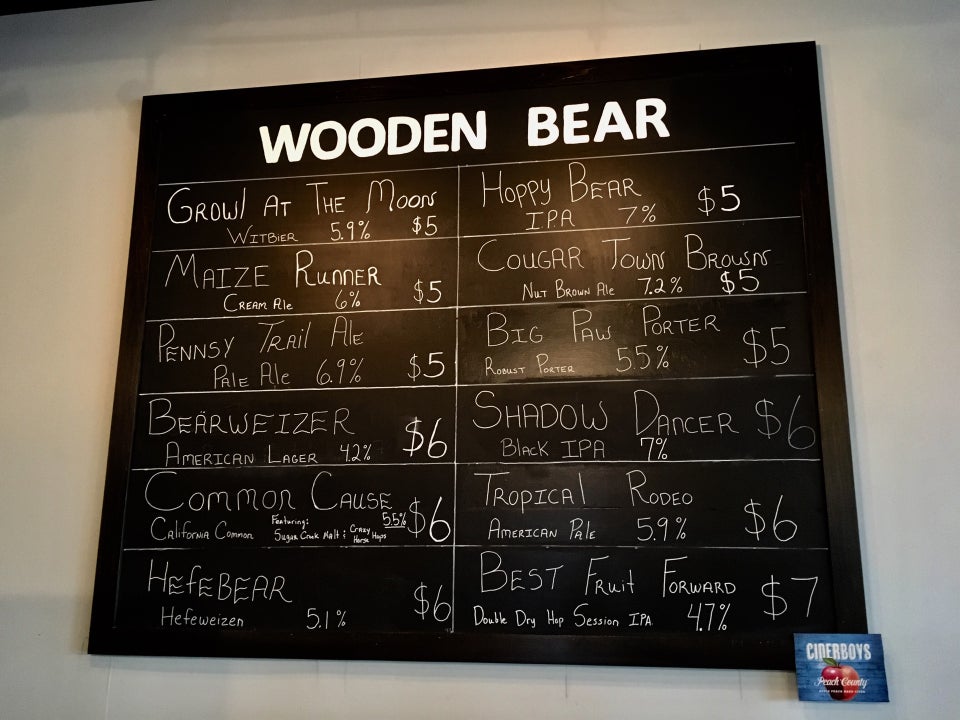 WOODEN BEAR
GROWL AT THE MOON
WITBIER 5.9% $5
MAIZE RUNNER
CREAM Ale 6% $5
PENNSY TRAIL ALE
PALE Ale 6.9% $5
BEÄRWEIZER
AMERICAN LAGER 4.2% $6
COMMON CAUSE
California Common Featuring: Sugar Creek Malt & Crazy Horse Hops 5.5% $6
HEFEBEAR
Hefeweizen 5.1% $6
HOPPY BEAR
IPA 7% $5
COUGAR TOWN BROWN
NUT BROWN Ale 7.2% $5
BIG PAW PORTER
ROBUST PORTER 5.5% $5
SHADOW DANCER
BLACK IPA 7% $6
TROPICAL RODEO
AMERICAN PALE 5.9% $6
BEST FRUIT FORWARD
Double Dry Hop Session IPA 4.7% $7
CIDERBOYS
Peach County